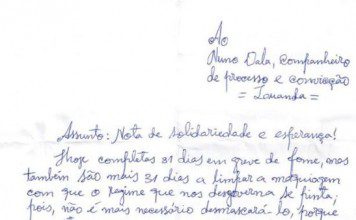 Ao
Nuno Dala, companheiro
de processo e convicção
= Luanda =
Assunto: Nota de solidariedade e esperança!
Hoje completas 31 dias em greve de fome, mas
também são mais 31 dias a limpar a maquiagem
com que o Regime que nos desgoverna se pinta,
pois, não é mais necessário desmascará-lo, porque